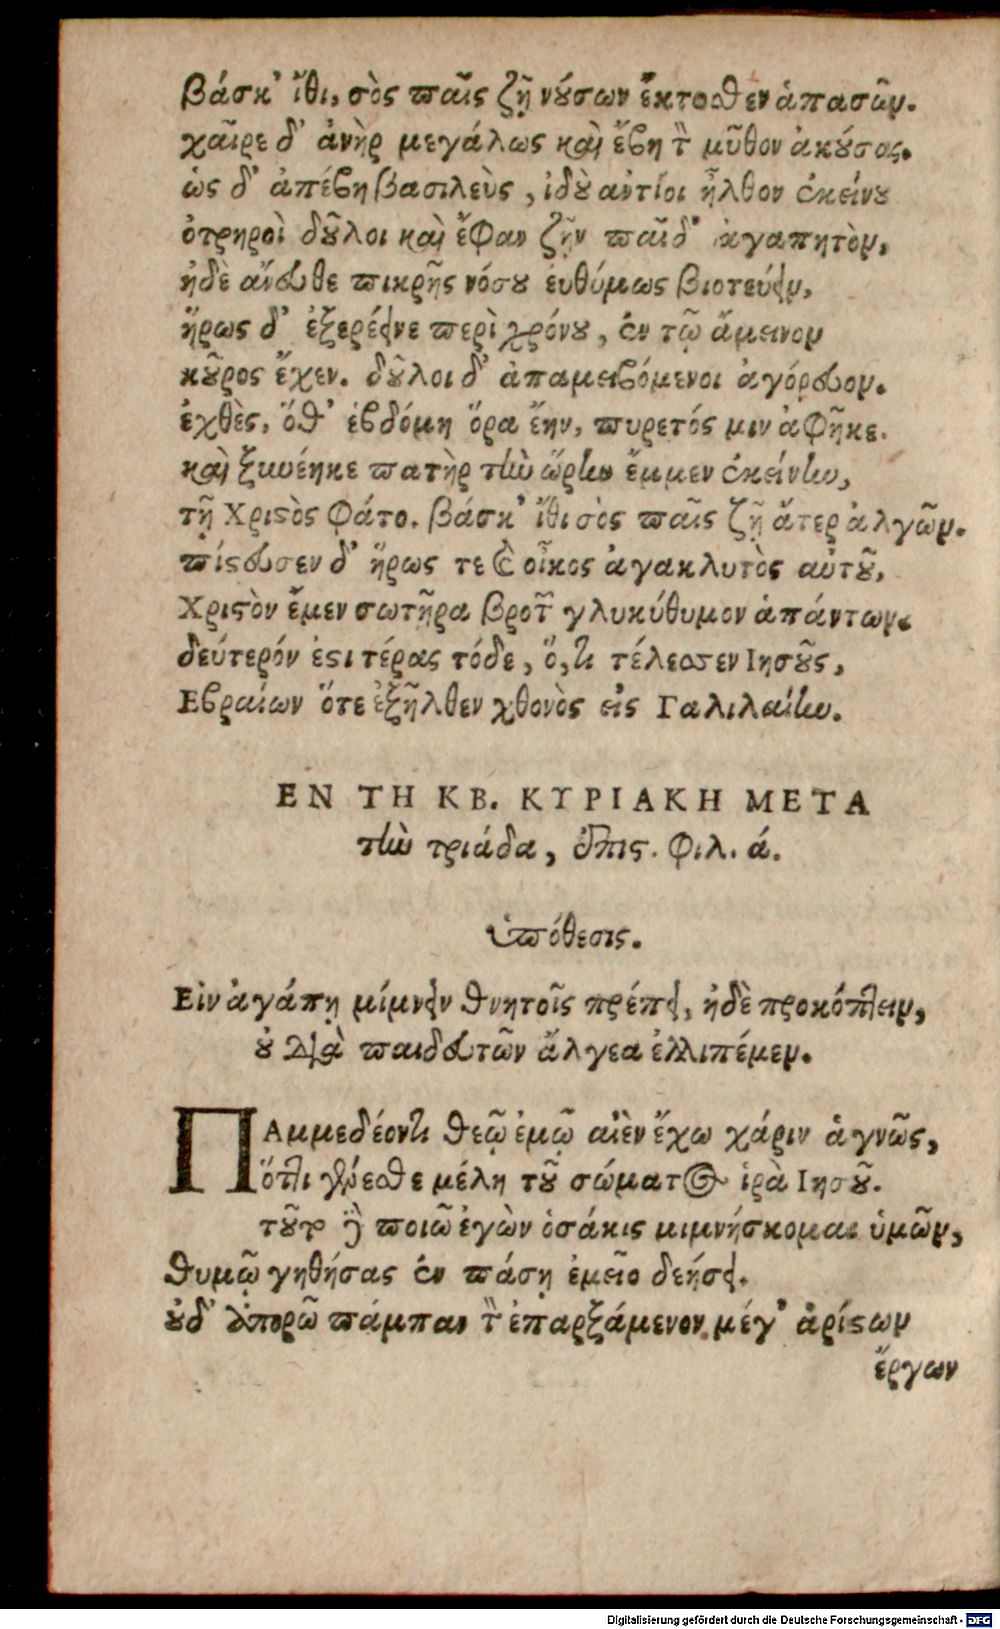 βάσκ' ἴθι, σὸς παῖς ζῇ νούσων ἔκτοσθεν ἁπασῶν.
χαῖρε δ' ἀνὴρ μεγάλως καὶ ἔβη τ μῦθον ἀκούσας.
ὡς δ' ἀπέβη βασιλεὺς, ἰδοὺ ἀντίοι ἦλθον ἐκείνου
ὀτρηροὶ δοῦλοι καὶ ἔφαν ζῆν παῖδ' ἀγαπητὸν,
ἠδὲ ἄνευθε πικρῆς νόσου εὐθύμως βιοτεύειν,
ἥρως δ' ἐξερέεινε περὶ χρόνου, ἐν τῷ ἄμεινον
κοῦρος ἔχεν. δοῦλοι δ' ἀπαμειβόμενοι ἀγόρευον.
ἐχθὲς, ὅθ' ἑβδόμη ὅρα ἔην, πυρετός μιν ἀφῆκε.
καὶ ξυνέηκε πατὴρ τὴν ὥρην ἔμμεν ἐκείνην,
τῇ Χριστὸς φάτο. βάσκ' ἴθι σὸς παῖς ζῇ ἄτερ ἀλγῶν.
πίστευσεν δ' ἥρως τε καὶ οἶκος ἀγακλυτὸς αὐτοῦ,
Χριστὸν ἔμεν σωτῆρα βροτῶν γλυκύθυμον ἁπάντων.
δεύτερόν ἐστι τέρας τόδε, ὅ,τι τέλεσσεν Ιησοῦς,
Εβραίων ὅτε ἐξῆλθεν χθονὸς εἰς Γαλιλαίην.
ΕΝ ΤΗ ΚΒ. ΚΥΡΙΑΚΗ ΜΕΤΑ
τὴν τριάδα, ἐπις. Φιλ. ά.
ὑπόθεσις.
Εἰν ἀγάπῃ μίμνειν θνητοῖς πρέπει, ἠδὲ προκόπτειν,
οὐ διὰ παιδευτῶν ἄλγεα ἐλλιπέμεν.
ΠΑμμεδέοντι θεῷ ἐμῷ αἰὲν ἔχω χάριν ἁγνῶς,
ὅττι γένεσθε μέλη τοῦ σώματος ἱρὰ Ιησοῦ.
τοῦτο γὰρ ποιῶ ἐγὼν ὁσάκις μιμνήσκομαι ὑμῶν,
θυμῷ γηθήσας ἐν πάσῃ ἐμεῖο δεήσει.
οὐδ' ἀπορῶ πάμπαν τ ἐπαρξάμενον μέγ' ἀρίστων
ἔργων
Digitalisierung gefördert durch die Deutsche Forschungsgemeinschaft - DFG